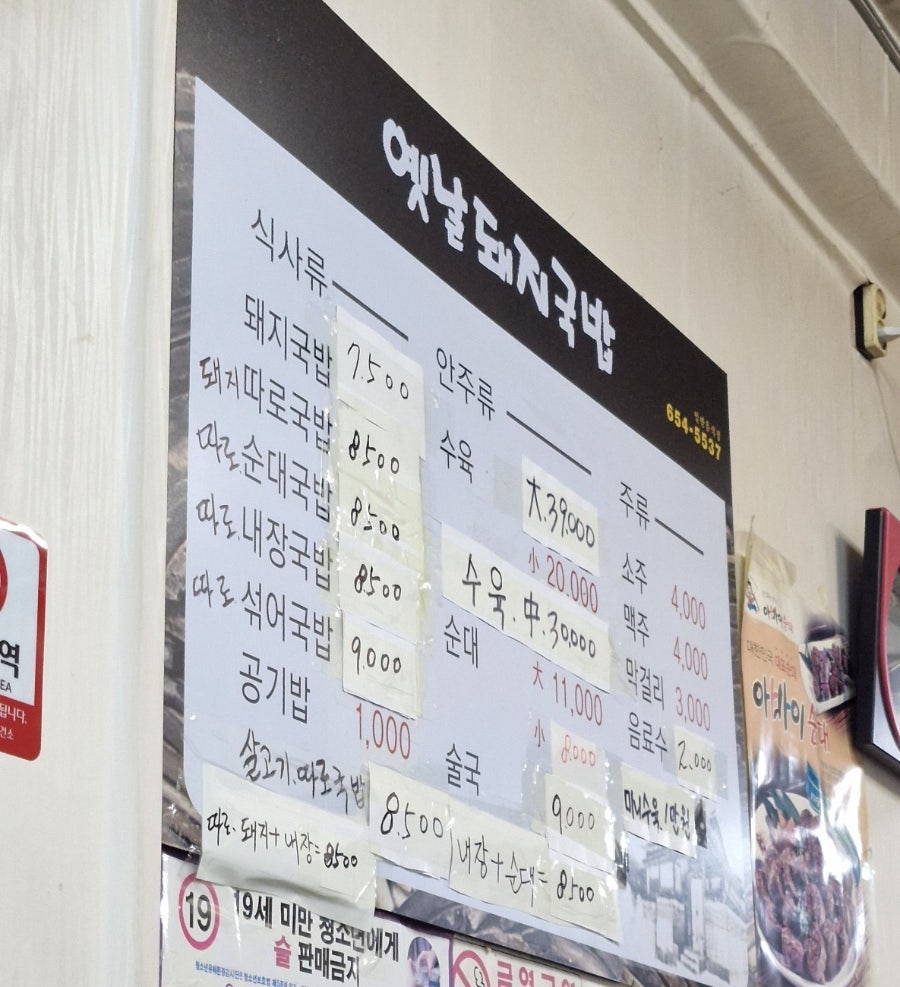 옛날돼지국밥
654-5537
식사류
돼지국밥 7.500
돼지따로국밥 8500
따로.순대국밥 8500
따로.내장국밥 8500
따로.섞어국밥 9.000
공기밥 1,000
살고기.따로국밥 8.500
따로.돼지+내장=8500
안주류
수육 大.39.000
小 20.000
수육.中.30.000
순대 大 11,000
小 8.000
술국 9.000
내장+순대=8500
주류
소주 4,000
맥주 4,000
막걸리 3,000
음료수 2.000
미니수육 1만원
아차이순대
19
19세 미만 청소년에게
술 판매금지
금연구역
역
EA
됩니다.
건소